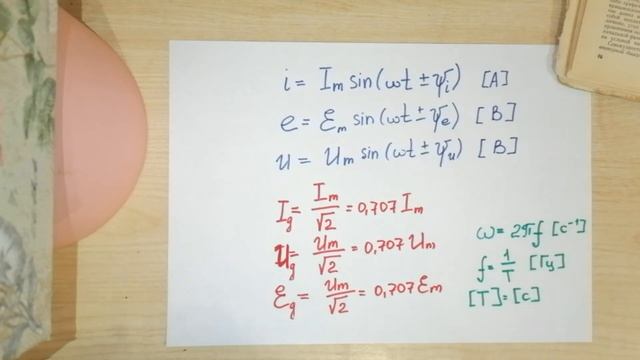 i = Iₘ sin(ωt ± ψᵢ) [A]
e = Ɛₘ sin(ωt ± ψₑ) [В]
u = Uₘ sin(ωt ± ψᵤ) [В]
I_g = Iₘ/√2 = 0,707 Iₘ
U_g = Uₘ/√2 = 0,707 Uₘ
Ɛ_g = Uₘ/√2 = 0,707 Ɛₘ
ω = 2πf [с⁻¹]
f = 1/T [Гц]
[T] = [с]